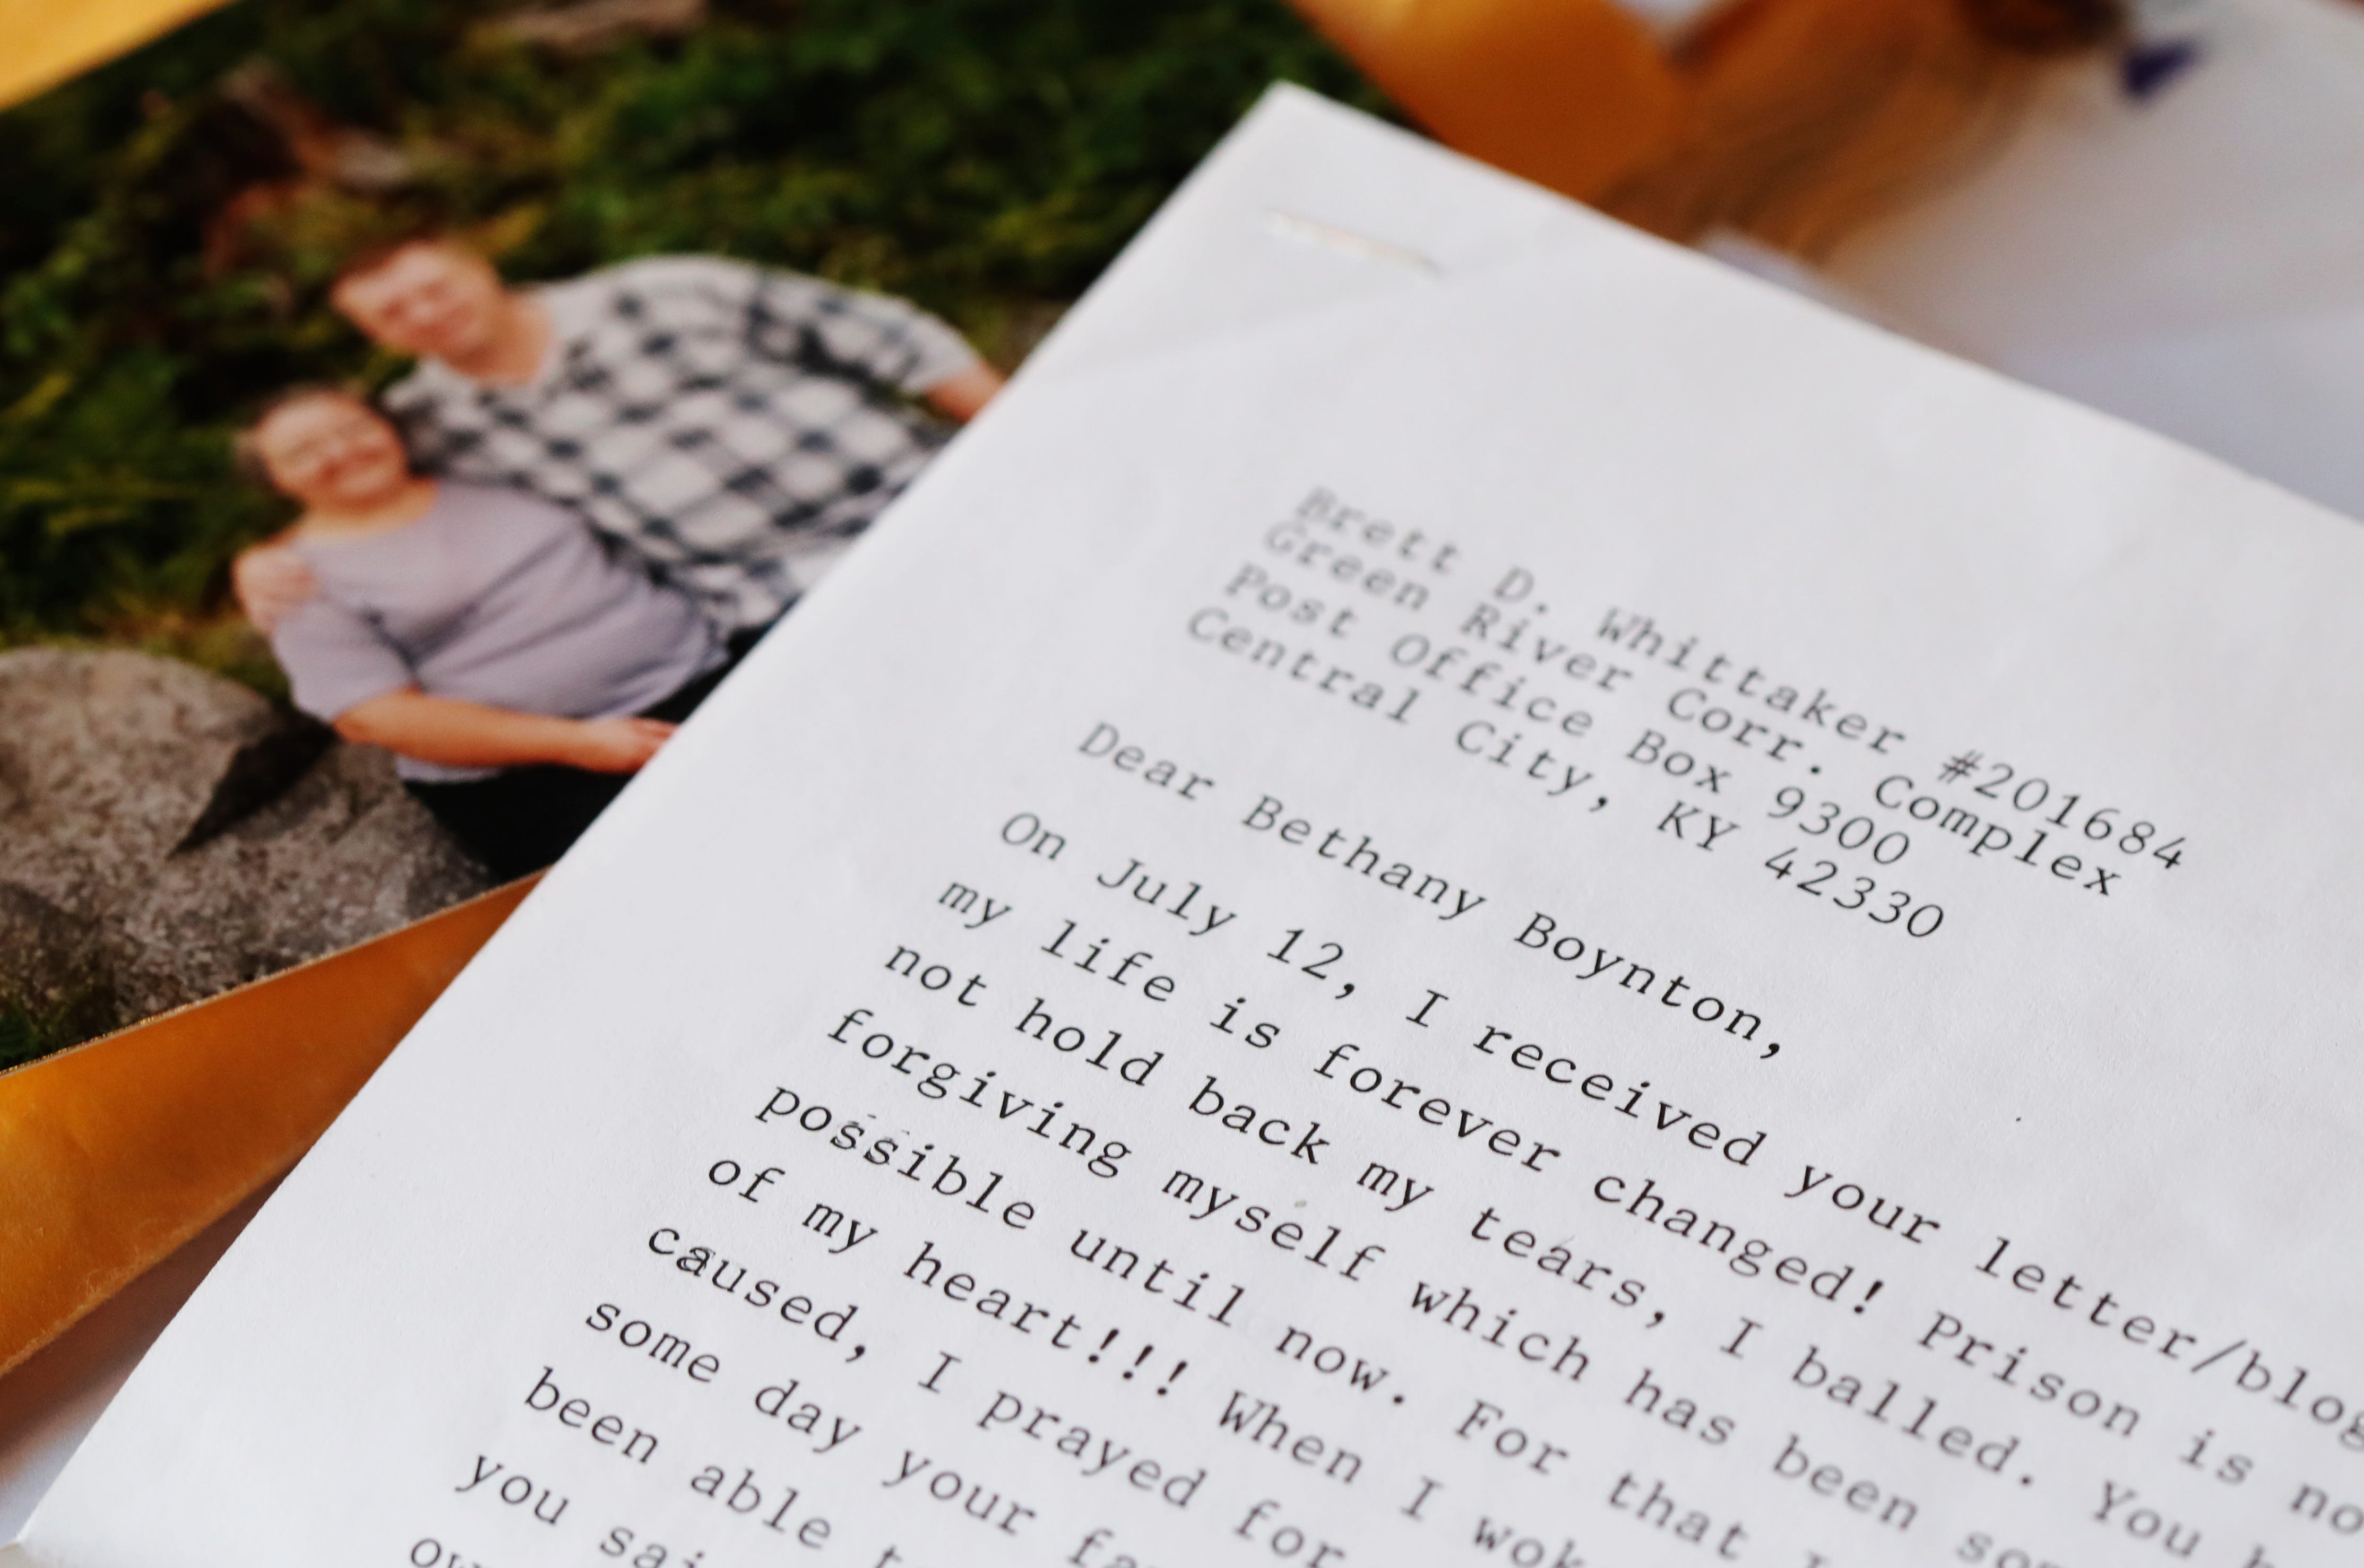 Brett D. Whittaker #201684
Green River Corr. Complex
Post Office Box 9300
Central City, KY 42330
Dear Bethany Boynton,
On July 12, I received your letter/blog
my life is forever changed! Prison is no
not hold back my tears, I balled. You h
forgiving myself which has been som
possible until now. For that I
of my heart!!! When I wok
caused, I prayed for
some day your fa
been able t
you sai
ow